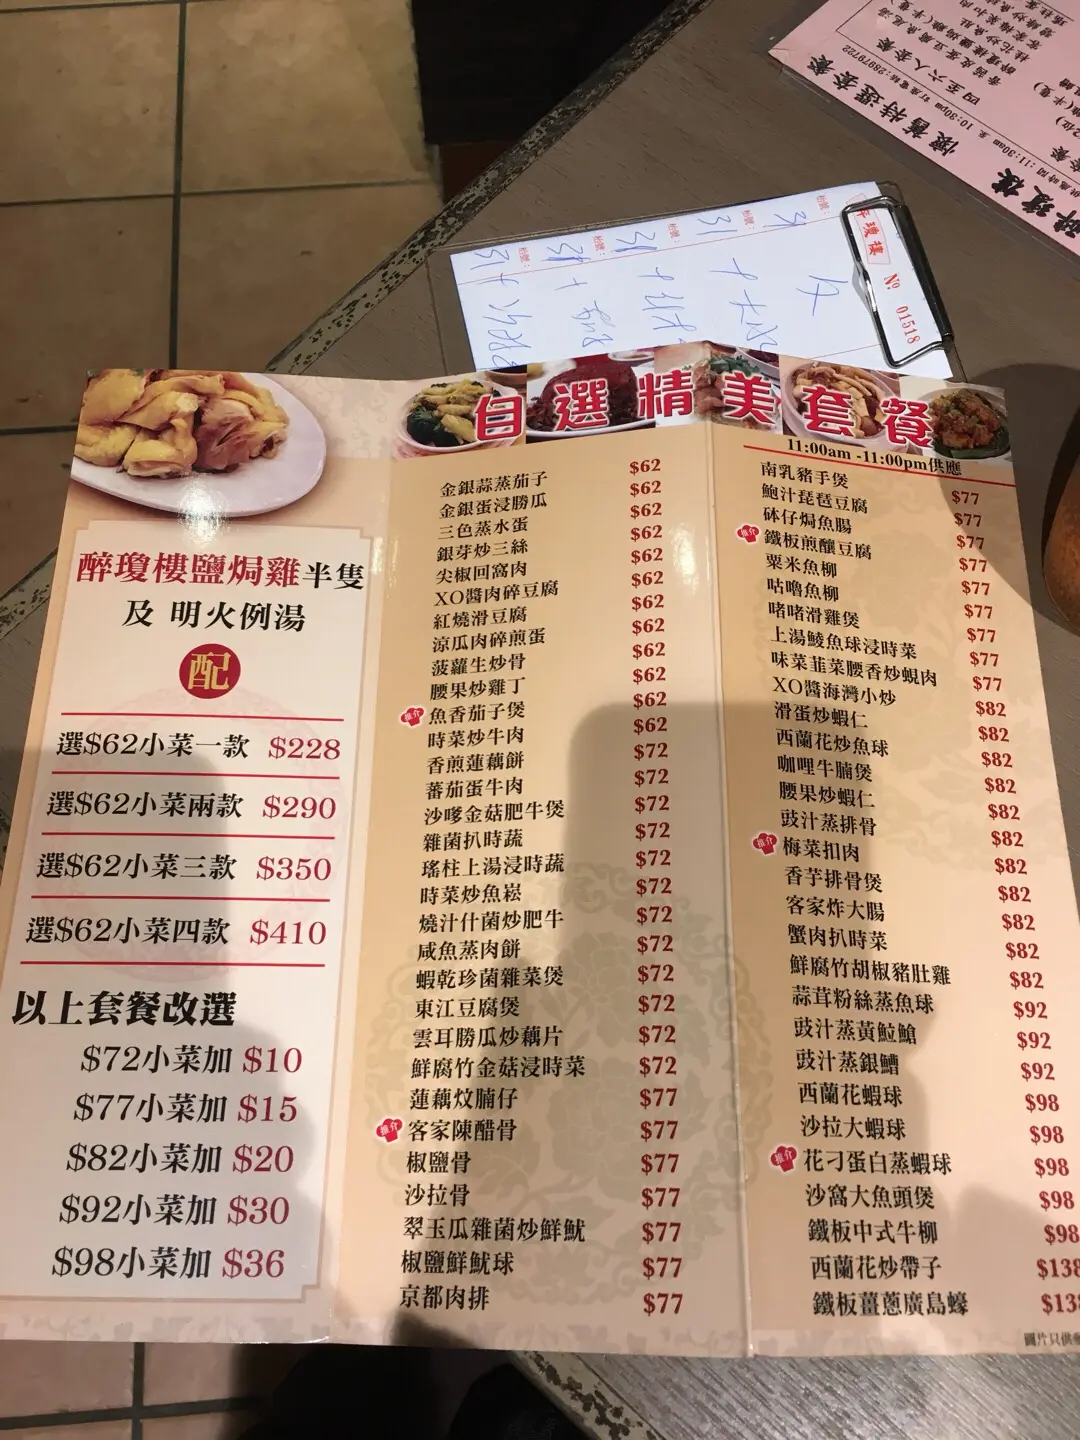 懷舊特選套餐
供應時間:11:30am 至 10:30pm 訂座電話:28979722
四至六人套餐
醉瓊樓
醉瓊樓
№ 01518
檯號:
31
檯號:
31
檯號:
31
檯號:
31
檯號:
31
自選精美套餐
11:00am -11:00pm供應
醉瓊樓鹽焗雞半隻
及 明火例湯
配
選$62小菜一款 $228
選$62小菜兩款 $290
選$62小菜三款 $350
選$62小菜四款 $410
以上套餐改選
$72小菜加 $10
$77小菜加 $15
$82小菜加 $20
$92小菜加 $30
$98小菜加 $36
金銀蒜蒸茄子 $62
金銀蛋浸勝瓜 $62
三色蒸水蛋 $62
銀芽炒三絲 $62
尖椒回窩肉 $62
XO醬肉碎豆腐 $62
紅燒滑豆腐 $62
涼瓜肉碎煎蛋 $62
菠蘿生炒骨 $62
腰果炒雞丁 $62
推介 魚香茄子煲 $62
時菜炒牛肉 $62
香煎蓮藕餅 $72
蕃茄蛋牛肉 $72
沙嗲金菇肥牛煲 $72
雜菌扒時蔬 $72
瑤柱上湯浸時蔬 $72
時菜炒魚崧 $72
燒汁什菌炒肥牛 $72
咸魚蒸肉餅 $72
蝦乾珍菌雜菜煲 $72
東江豆腐煲 $72
雲耳勝瓜炒藕片 $72
鮮腐竹金菇浸時菜 $72
蓮藕炆腩仔 $77
推介 客家陳醋骨 $77
椒鹽骨 $77
沙拉骨 $77
翠玉瓜雜菌炒鮮魷 $77
椒鹽鮮魷球 $77
京都肉排 $77
南乳豬手煲 $77
鮑汁琵琶豆腐 $77
砵仔焗魚腸 $77
推介 鐵板煎釀豆腐 $77
粟米魚柳 $77
咕嚕魚柳 $77
啫啫滑雞煲 $77
上湯鯪魚球浸時菜 $77
味菜韮菜腰香炒蜆肉 $77
XO醬海灣小炒 $82
滑蛋炒蝦仁 $82
西蘭花炒魚球 $82
咖哩牛腩煲 $82
腰果炒蝦仁 $82
豉汁蒸排骨 $82
推介 梅菜扣肉 $82
香芋排骨煲 $82
客家炸大腸 $82
蟹肉扒時菜 $82
鮮腐竹胡椒豬肚雞 $82
蒜茸粉絲蒸魚球 $92
豉汁蒸黃䱽鱠 $92
豉汁蒸銀鱈 $92
西蘭花蝦球 $98
沙拉大蝦球 $98
推介 花刁蛋白蒸蝦球 $98
沙窩大魚頭煲 $98
鐵板中式牛柳 $98
西蘭花炒帶子 $138
鐵板薑蔥廣島蠔 $138
圖片只供